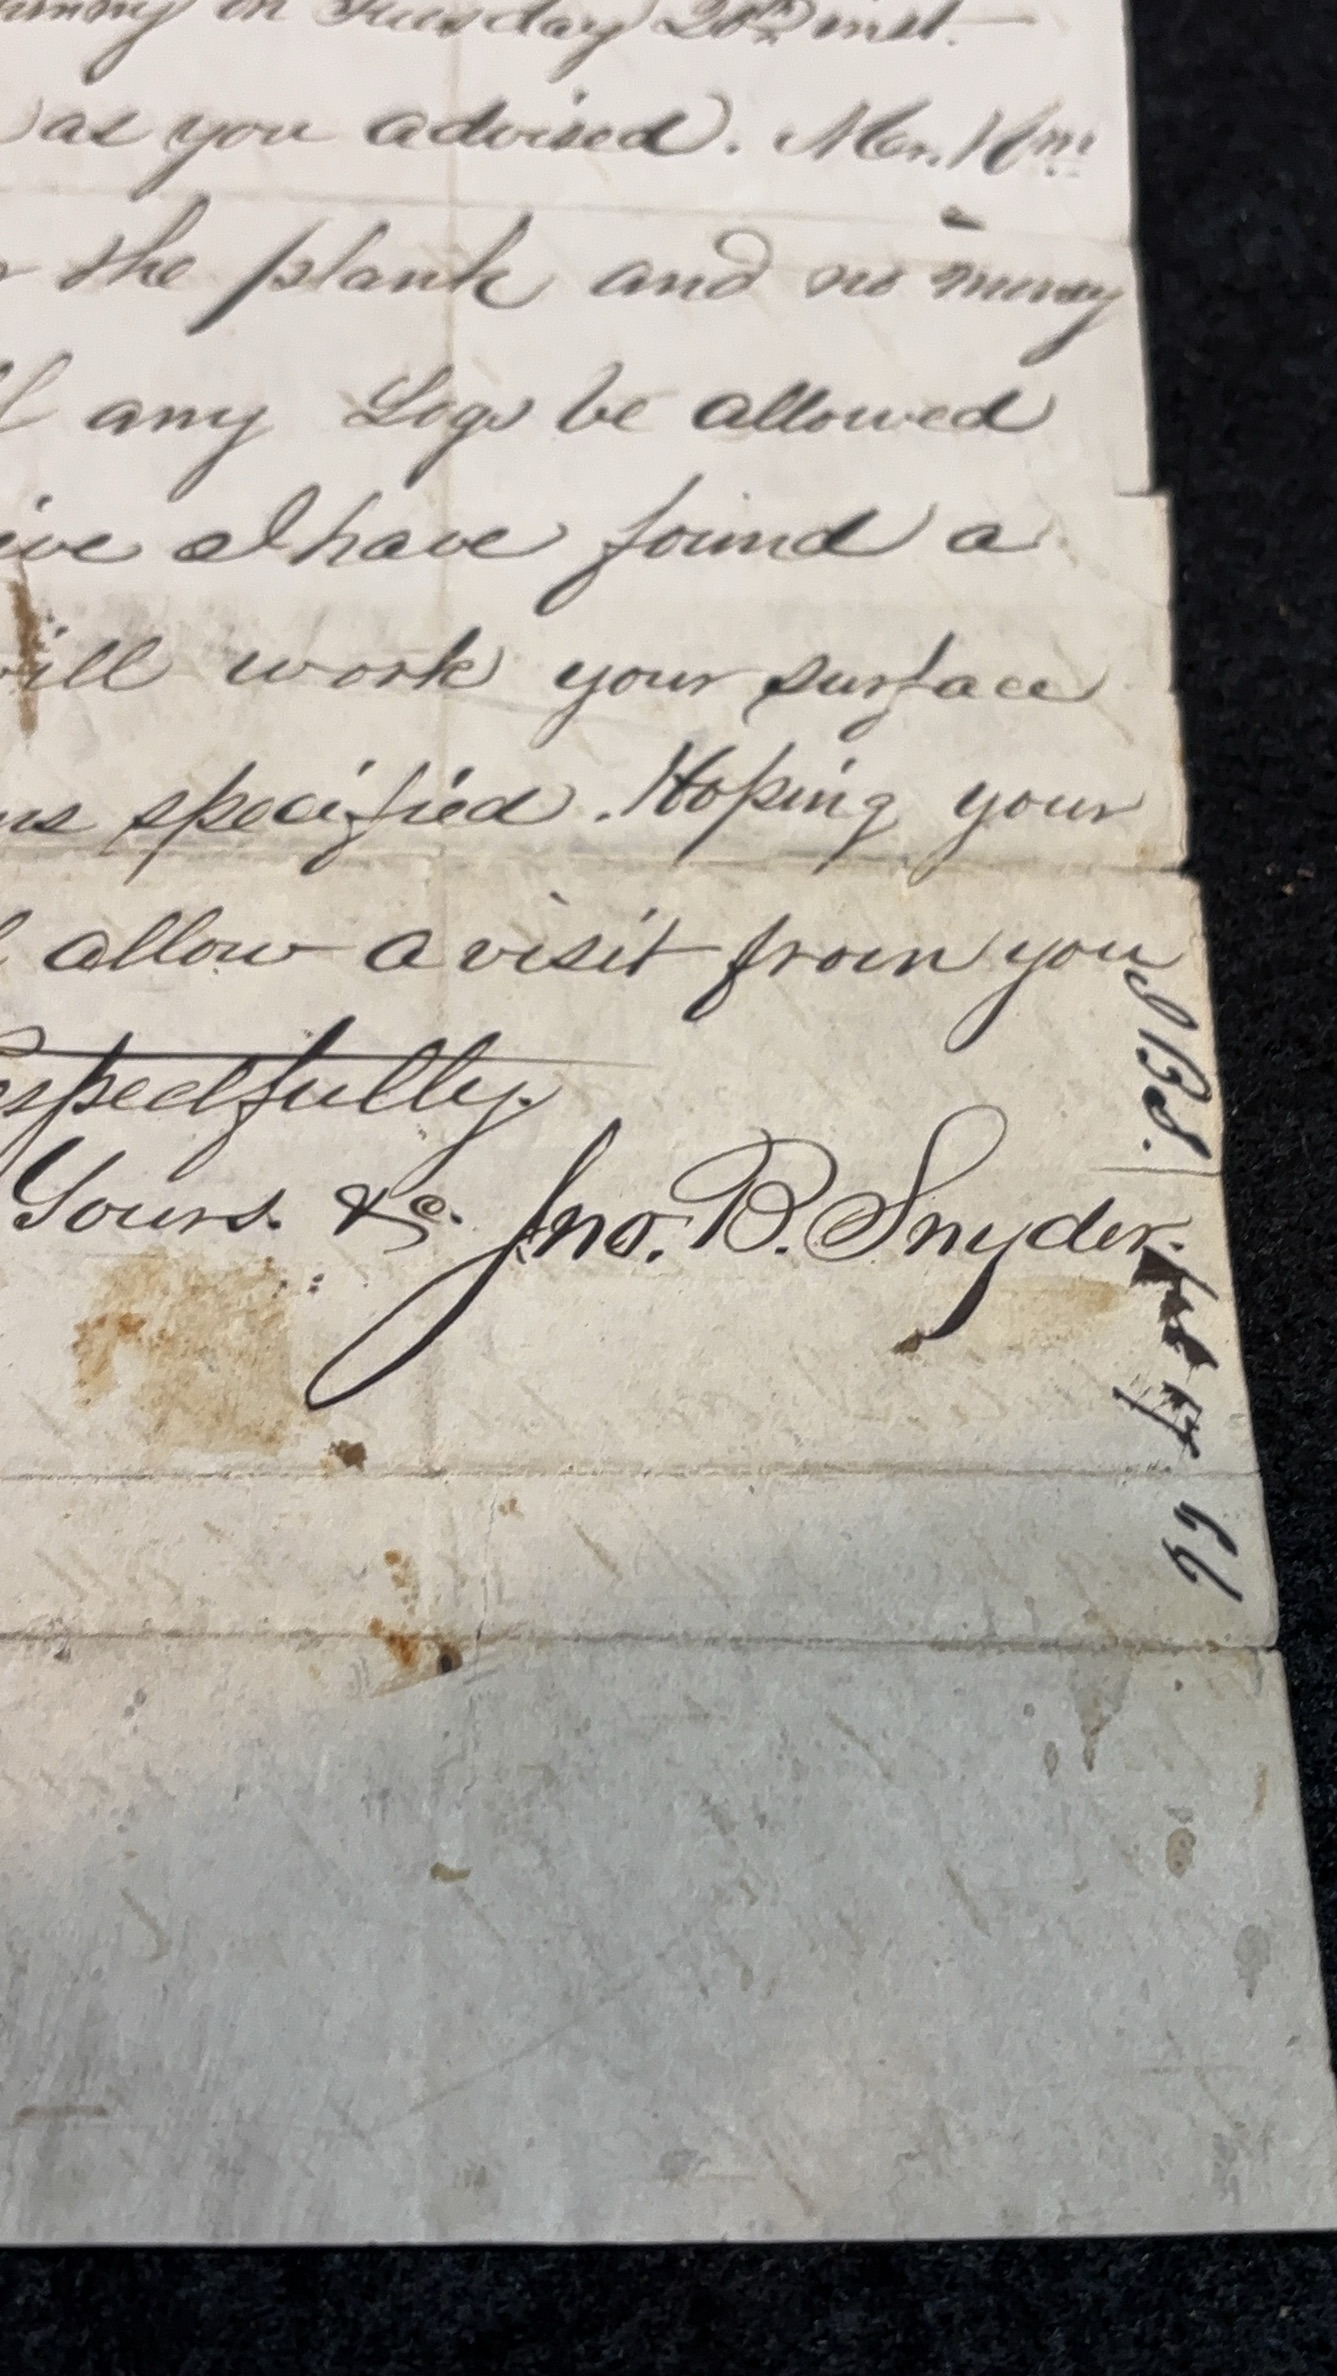 on Tuesday 20th inst.
as you advised. Mr. Wm
the plank and no money
any Logs be allowed
I have found a
will work your surface
specified. Hoping your
allow a visit from you
Respectfully.
Yours. &c. Jno. B. Snyder.
J.B.S.